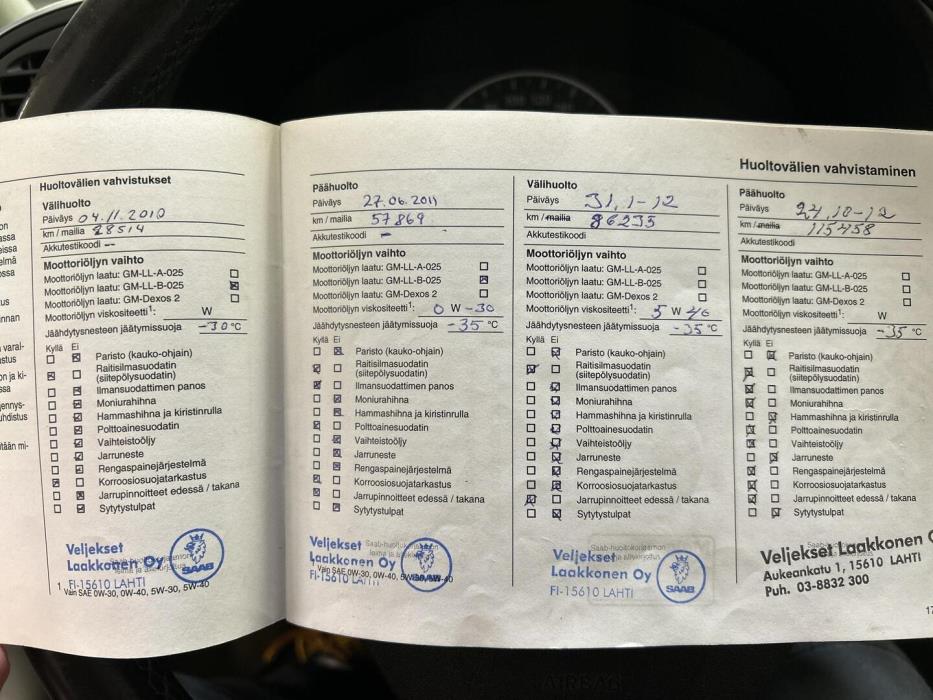 Huoltovälien vahvistukset
Välihuolto
Päiväys 04.11.2010
km / mailia 28514
Akkutestikoodi --
Moottoriöljyn vaihto
Moottoriöljyn laatu: GM-LL-A-025
Moottoriöljyn laatu: GM-LL-B-025
Moottoriöljyn laatu: GM-Dexos 2
Moottoriöljyn viskositeetti1: W
Jäähdytysnesteen jäätymissuoja -30 °C
Kyllä Ei
Paristo (kauko-ohjain)
Raitisilmasuodatin
(siitepölysuodatin)
Ilmansuodattimen panos
Moniurahihna
Hammashihna ja kiristinrulla
Polttoainesuodatin
Vaihteistoöljy
Jarruneste
Rengaspainejärjestelmä
Korroosiosuojatarkastus
Jarrupinnoitteet edessä / takana
Sytytystulpat
Veljekset
Laakkonen Oy
FI-15610 LAHTI
SAAB
1. Vain SAE 0W-30, 0W-40, 5W-30, 5W-40
Päähuolto
Päiväys 27.06.2011
km / mailia 57869
Akkutestikoodi -
Moottoriöljyn vaihto
Moottoriöljyn laatu: GM-LL-A-025
Moottoriöljyn laatu: GM-LL-B-025
Moottoriöljyn laatu: GM-Dexos 2
Moottoriöljyn viskositeetti1: 0 W -30
Jäähdytysnesteen jäätymissuoja -35 °C
Kyllä Ei
Paristo (kauko-ohjain)
Raitisilmasuodatin
(siitepölysuodatin)
Ilmansuodattimen panos
Moniurahihna
Hammashihna ja kiristinrulla
Polttoainesuodatin
Vaihteistoöljy
Jarruneste
Rengaspainejärjestelmä
Korroosiosuojatarkastus
Jarrupinnoitteet edessä / takana
Sytytystulpat
Veljekset
Laakkonen Oy
FI-15610 LAHTI
SAAB
1 Vain SAE 0W-30, 0W-40, 5W-30, 5W-40
Huoltovälien vahvistaminen
Välihuolto
Päiväys 31.1-12
km / mailia 86235
Akkutestikoodi
Moottoriöljyn vaihto
Moottoriöljyn laatu: GM-LL-A-025
Moottoriöljyn laatu: GM-LL-B-025
Moottoriöljyn laatu: GM-Dexos 2
Moottoriöljyn viskositeetti1: 5 W 40
Jäähdytysnesteen jäätymissuoja -35 °C
Kyllä Ei
Paristo (kauko-ohjain)
Raitisilmasuodatin
(siitepölysuodatin)
Ilmansuodattimen panos
Moniurahihna
Hammashihna ja kiristinrulla
Polttoainesuodatin
Vaihteistoöljy
Jarruneste
Rengaspainejärjestelmä
Korroosiosuojatarkastus
Jarrupinnoitteet edessä / takana
Sytytystulpat
Veljekset
Laakkonen Oy
FI-15610 LAHTI
SAAB
Päähuolto
Päiväys 24.10-12
km / mailia 115458
Akkutestikoodi
Moottoriöljyn vaihto
Moottoriöljyn laatu: GM-LL-A-025
Moottoriöljyn laatu: GM-LL-B-025
Moottoriöljyn laatu: GM-Dexos 2
Moottoriöljyn viskositeetti1: W
Jäähdytysnesteen jäätymissuoja -35 °C
Kyllä Ei
Paristo (kauko-ohjain)
Raitisilmasuodatin
(siitepölysuodatin)
Ilmansuodattimen panos
Moniurahihna
Hammashihna ja kiristinrulla
Polttoainesuodatin
Vaihteistoöljy
Jarruneste
Rengaspainejärjestelmä
Korroosiosuojatarkastus
Jarrupinnoitteet edessä / takana
Sytytystulpat
Veljekset Laakkonen
Aukeankatu 1, 15610 LAHTI
Puh. 03-8832 300
17
AIRBAG